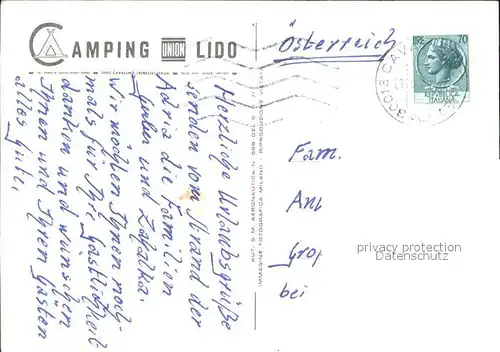 CAMPING UNION LIDO
Österreich
LIRE 70
30013 CAVA
ITALIANA
Herzliche Urlaubsgrüße
senden vom Strand der
Adria die Familien
und Zahalka.
Wir möchten Ihnen noch-
mals für Ihre Gastlichkeit
danken und wünschen
Ihnen und Ihren Gästen
alles Gute,
AUT. S. M. AERONAUTICA N. 599 DEL
IMMAGINE FOTOGRAFICA MILANO - RIPRODUZIONE VIETATA
Fam.
Am
Grop
bei
privacy protection
Datenschutz